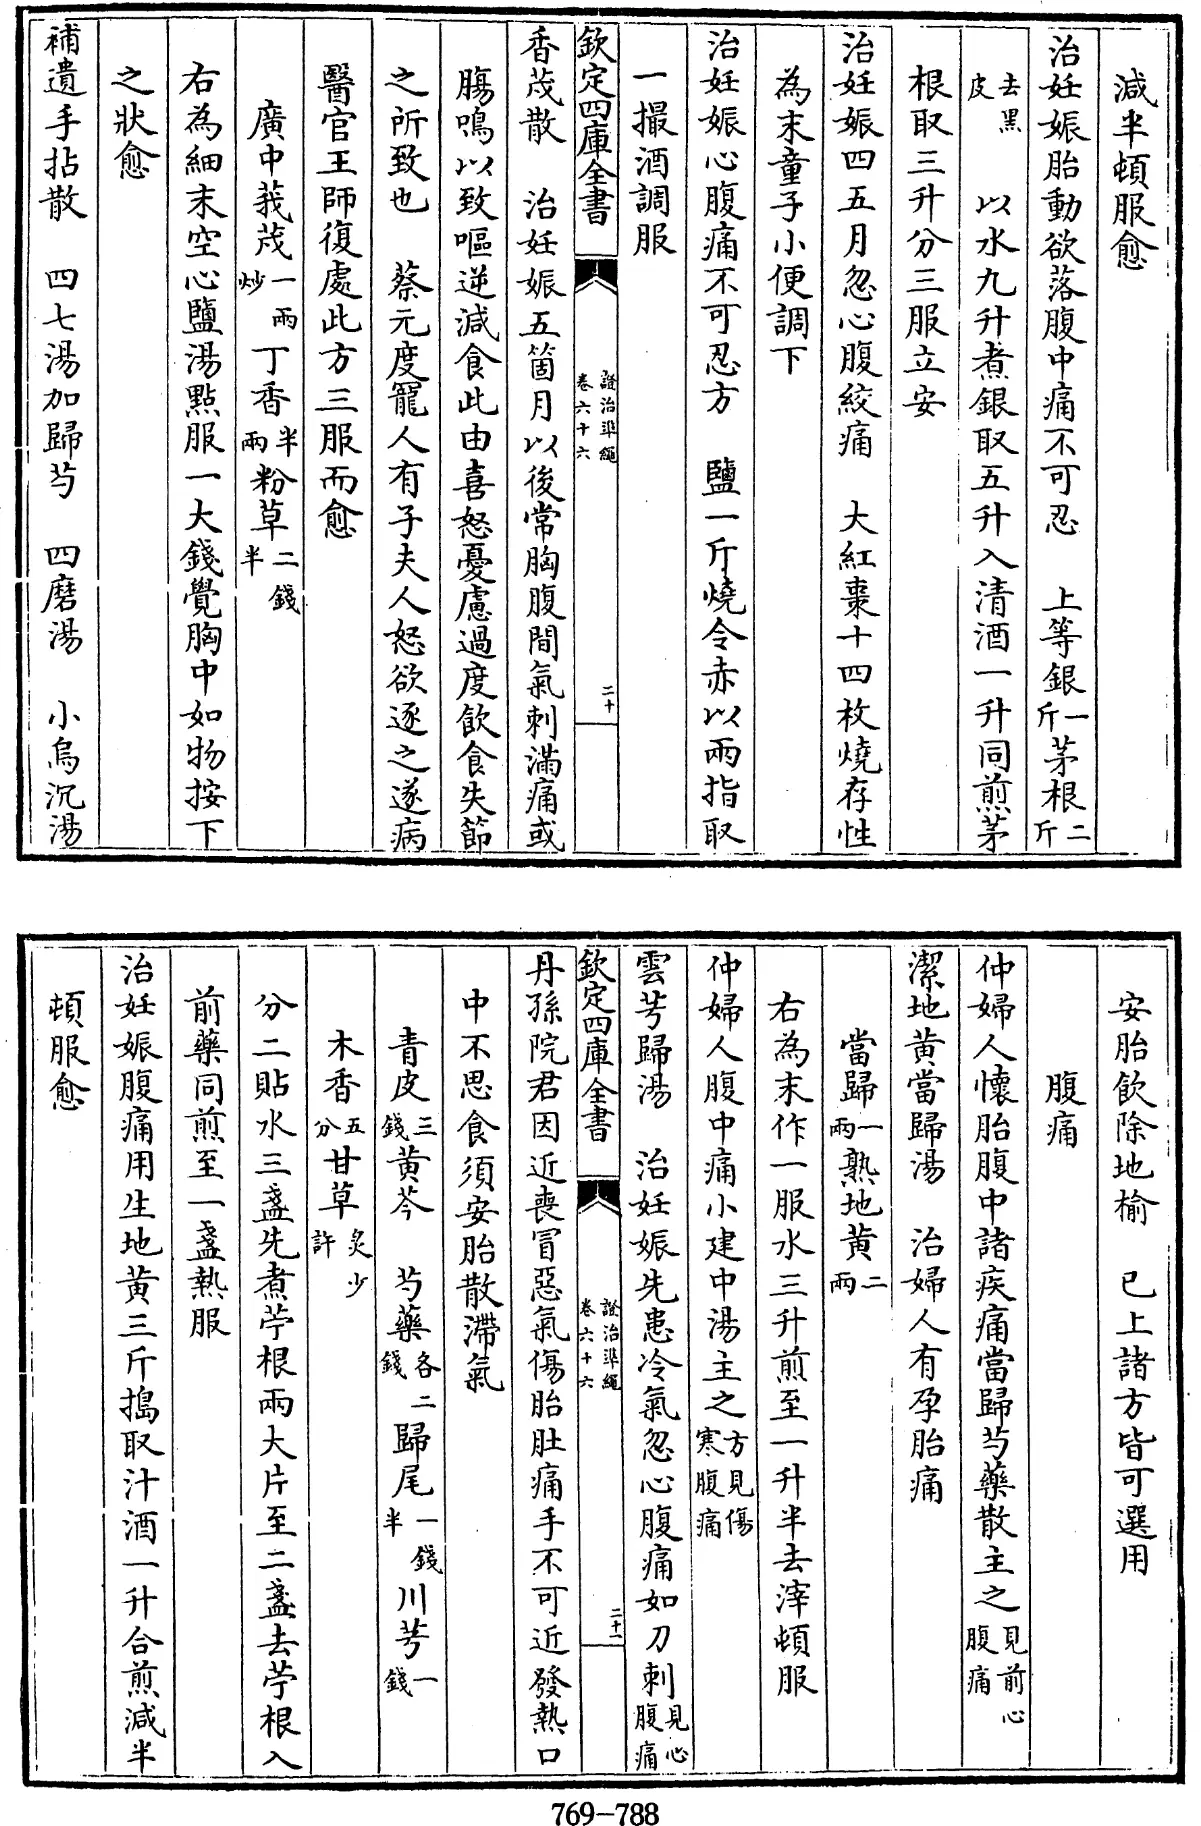 減半頓服愈
治妊娠胎動欲落腹中痛不可忍　上等銀一斤茅根二斤
去黑皮　以水九升煮銀取五升入清酒一升同煎茅
根取三升分三服立安
治妊娠四五月忽心腹絞痛　大紅棗十四枚燒存性
為末童子小便調下
治妊娠心腹痛不可忍方　鹽一斤燒令赤以兩指取
一撮酒調服
欽定四庫全書　證治準繩卷六十六　二十
香茂散　治妊娠五箇月以後常胸腹間氣刺滿痛或
腸鳴以致嘔逆減食此由喜怒憂慮過度飲食失節
之所致也　蔡元度寵人有子夫人怒欲逐之遂病
醫官王師復處此方三服而愈
廣中莪茂一兩炒丁香半兩粉草二錢半
右為細末空心鹽湯點服一大錢覺胸中如物按下
之狀愈
補遺手拈散　四七湯加歸芍　四磨湯　小烏沉湯
安胎飲除地榆　已上諸方皆可選用
腹痛
仲婦人懷胎腹中諸疾痛當歸芍藥散主之見前心腹痛
潔地黄當歸湯　治婦人有孕胎痛
當歸一兩熟地黄二兩
右為末作一服水三升煎至一升半去滓頓服
仲婦人腹中痛小建中湯主之方見傷寒腹痛
雲芎歸湯　治妊娠先患冷氣忽心腹痛如刀刺見心腹痛
欽定四庫全書　證治準繩卷六十六　二十一
丹孫院君因近喪冒惡氣傷胎肚痛手不可近發熱口
中不思食須安胎散滯氣
青皮三錢黄芩　芍藥各二錢歸尾一錢半川芎一錢
木香五分甘草炙少許
分二貼水三盞先煮苧根兩大片至二盞去苧根入
前藥同煎至一盞熱服
治妊娠腹痛用生地黄三斤搗取汁酒一升合煎減半
頓服愈
769-788